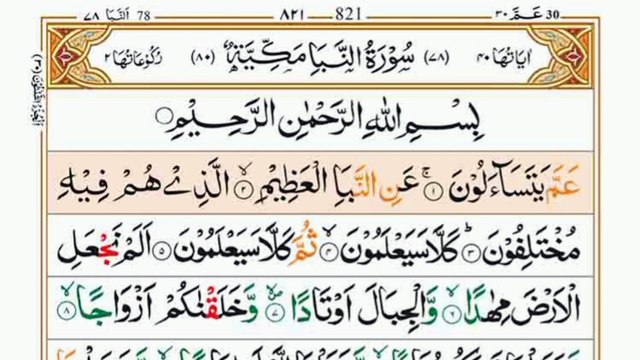 ٧٨ اَلنَّبَا 78 ٨٢١ 821 ٣٠ عَمَّ 30
اٰيَاتُهَا ٤٠ (٧٨) سُوْرَةُ النَّبَاِ مَكِّيَّةٌ (٨٠) رُكُوْعَاتُهَا ٢
بِسْمِ اللّٰهِ الرَّحْمٰنِ الرَّحِيْمِ
عَمَّ يَتَسَآءَلُوْنَ ۚ‏﴿۱﴾ عَنِ النَّبَاِ الْعَظِيْمِۙ‏﴿۲﴾ الَّذِىْ هُمْ فِيْهِ
مُخْتَلِفُوْنَؕ‏﴿۳﴾ كَلَّا سَيَعْلَمُوْنَۙ‏﴿۴﴾ ثُمَّ كَلَّا سَيَعْلَمُوْنَ‏﴿۵﴾ اَلَمْ نَجْعَلِ
الْاَرْضَ مِهٰدًاۙ‏﴿۶﴾ وَّالْجِبَالَ اَوْتَادًا‏﴿۷﴾ وَّخَلَقْنٰكُمْ اَزْوَاجًاۙ‏﴿۸﴾